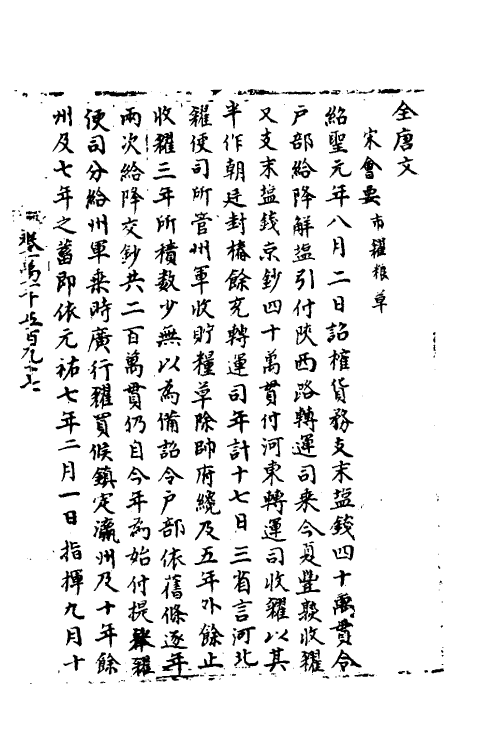 全唐文
宋會要 市糴糧草
紹聖元年八月二日詔榷貨務支末塩錢四十萬貫令
戶部給降解塩引付陝西路轉運司乘今夏豐熟收糴
又支末塩錢京鈔四十萬貫付河東轉運司收糴以其
半作朝廷封樁餘充轉運司年計十七日三省言河北
糴便司所管州軍收貯糧草除帥府纔及五年外餘止
收糴三年所積数少無以為備詔令戶部依舊條逐年
兩次給降交鈔共二百萬貫仍自今年為始付提舉糴
便司分給州軍乘時廣行糴買候鎮定瀛州及十年餘
州及七年之蓄即依元祐七年二月一日指揮九月十